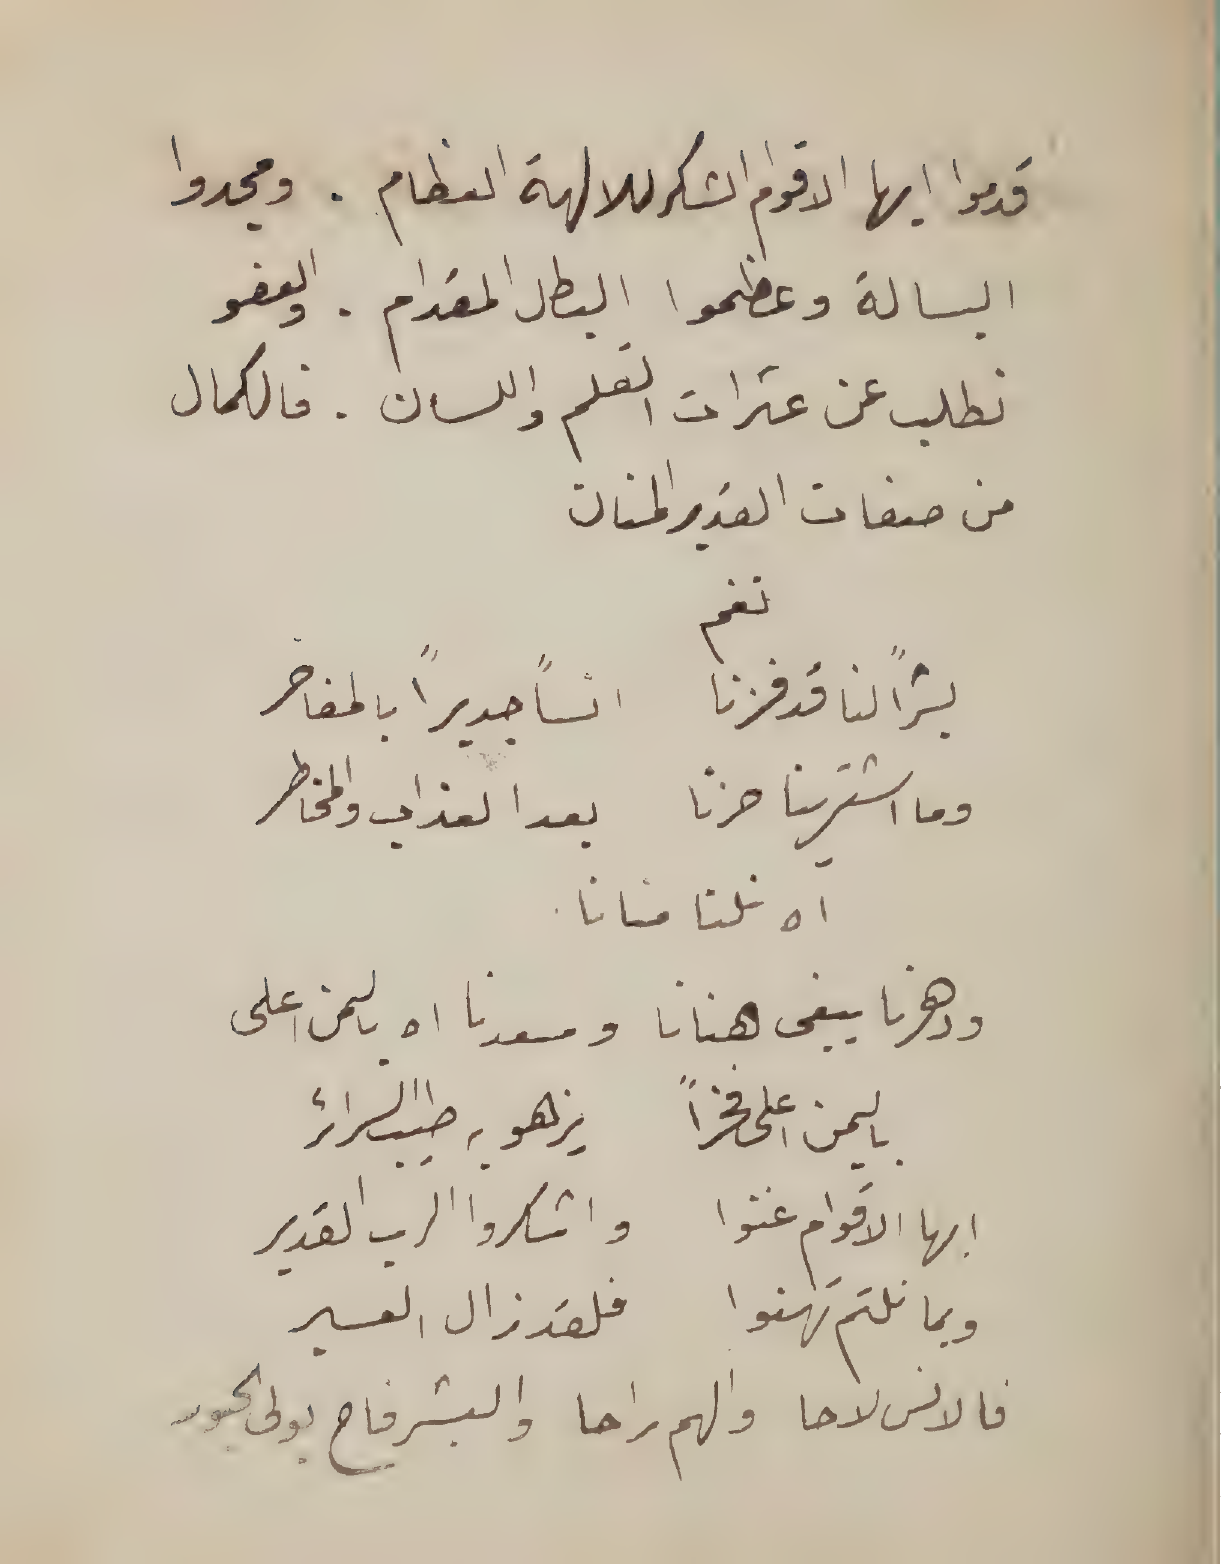 قدموا ايها الاقوام الشكر للالهة العظام . ومجدوا
البسالة وعظموا البطل المقدام . والعفو
نطلب عن عثرات القلم واللسان . فالكمال
من صفات القدير المنان
نغم
بشراً لنا قد فزنا انساً جديراً بالمفاخر
وما اشترينا حزنا بعد العذاب والمخاطر
اه نلنا منانا
ودهرنا يبغى هنانا ومسعدنا اه باليمن اعلى
باليمن اعلى فخراً يزهو به طيب السرائر
ايها الاقوام غنوا واشكروا الرب القدير
وبما نلتم تهنوا فلقد زال العسير
فالانس لاحا والهم راحا والبشر فاح يولى الحبور